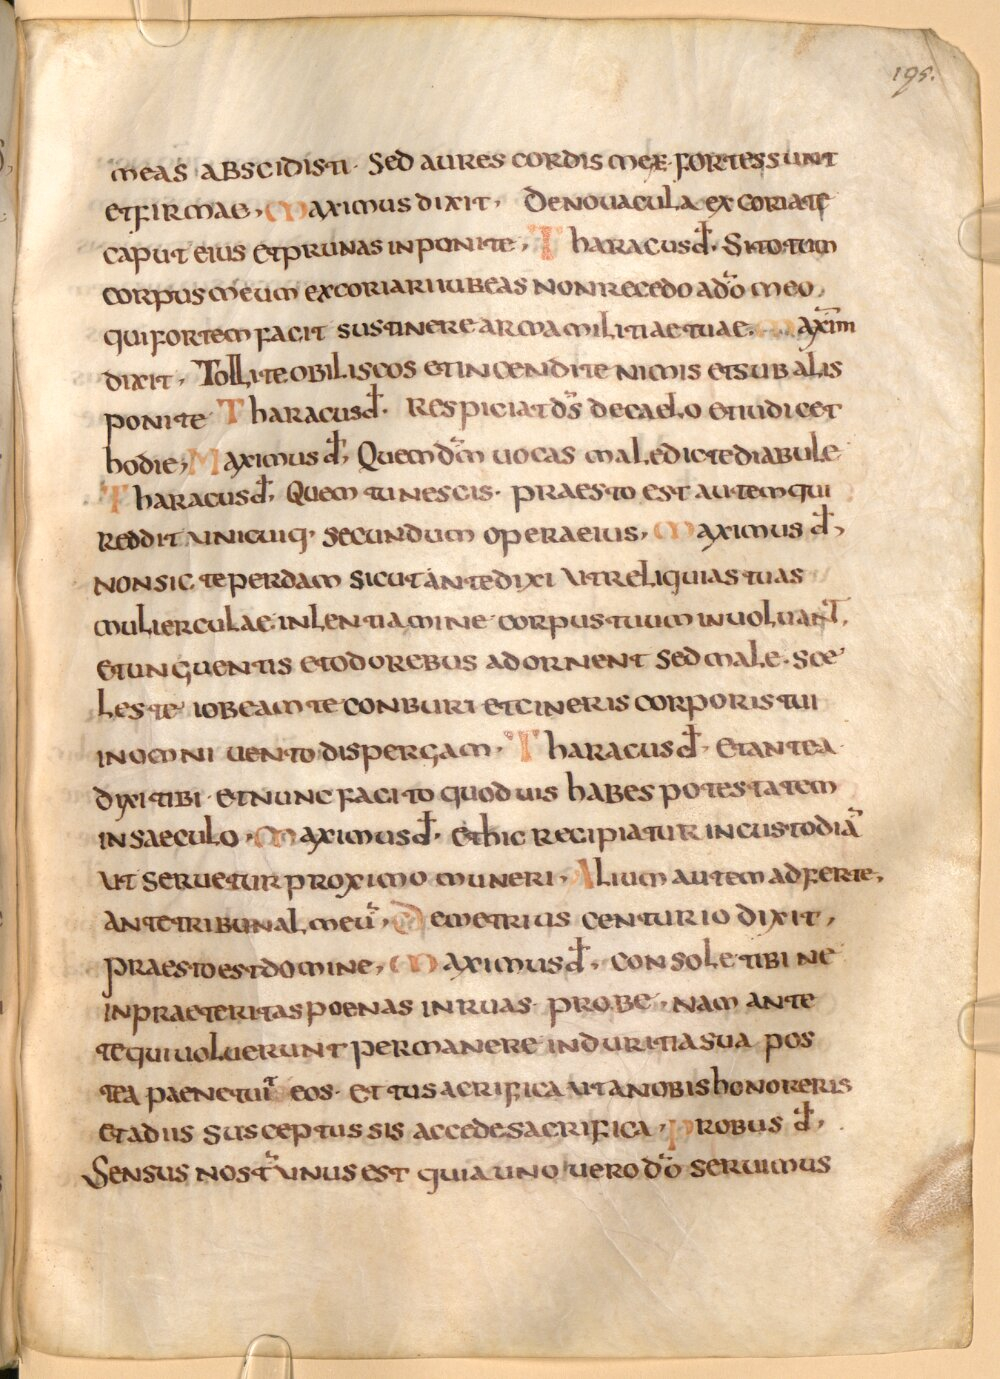 195.
meas abscidisti· Sed aures cordis meae fortes sunt
et firmae, Maximus dixit, De novacula excoriate
caput eius et prunas inponite, Tharacus đ. Si totum
corpus meum excoriari iubeas non recedo a dō meo,
qui fortem facit sustinere arma militiae tuae. Maxim̄
dixit, Tollite obiliscos et incendite nimis et sub alis
ponite Tharacus đ. Respiciat ds̄ de caelo et iudicet
hodie, Maximus đ, Quem dm̄ uocas maledicte diabule
Tharacus đ, Quem tu nescis· praesto est autem qui
reddit unicuiq· secundum opera eius, Maximus đ,
non sic te perdam sicut ante dixi ut reliquias tuas
mulierculae in lentiamine corpus tuum inuoluant,
et unguentis et odorebus adornent sed male· sce
leste iobeam te conburi et cineris corporis tui
in omni uento dispergam· Tharacus đ· et antea
dixi tibi· et nunc facito quod uis habes potestatem
in saeculo, Maximus đ· et hic recipiatur in custodiā
ut seruetur proximo muneri, Alium autem adferte,
ante tribunal meū, Demetrius centurio dixit,
praesto est domine, Maximus đ, Consoletibi ne
in praeteritas poenas inruas· probe, nam ante
te qui uoluerunt permanere in duritia sua pos
tea paenetuit eos· et tu sacrifica ut a nobis honoreris
et a diis susceptus sis accede sacrifica, Probus đ,
Sensus nost̄ unus est quia uno uero dō seruimus